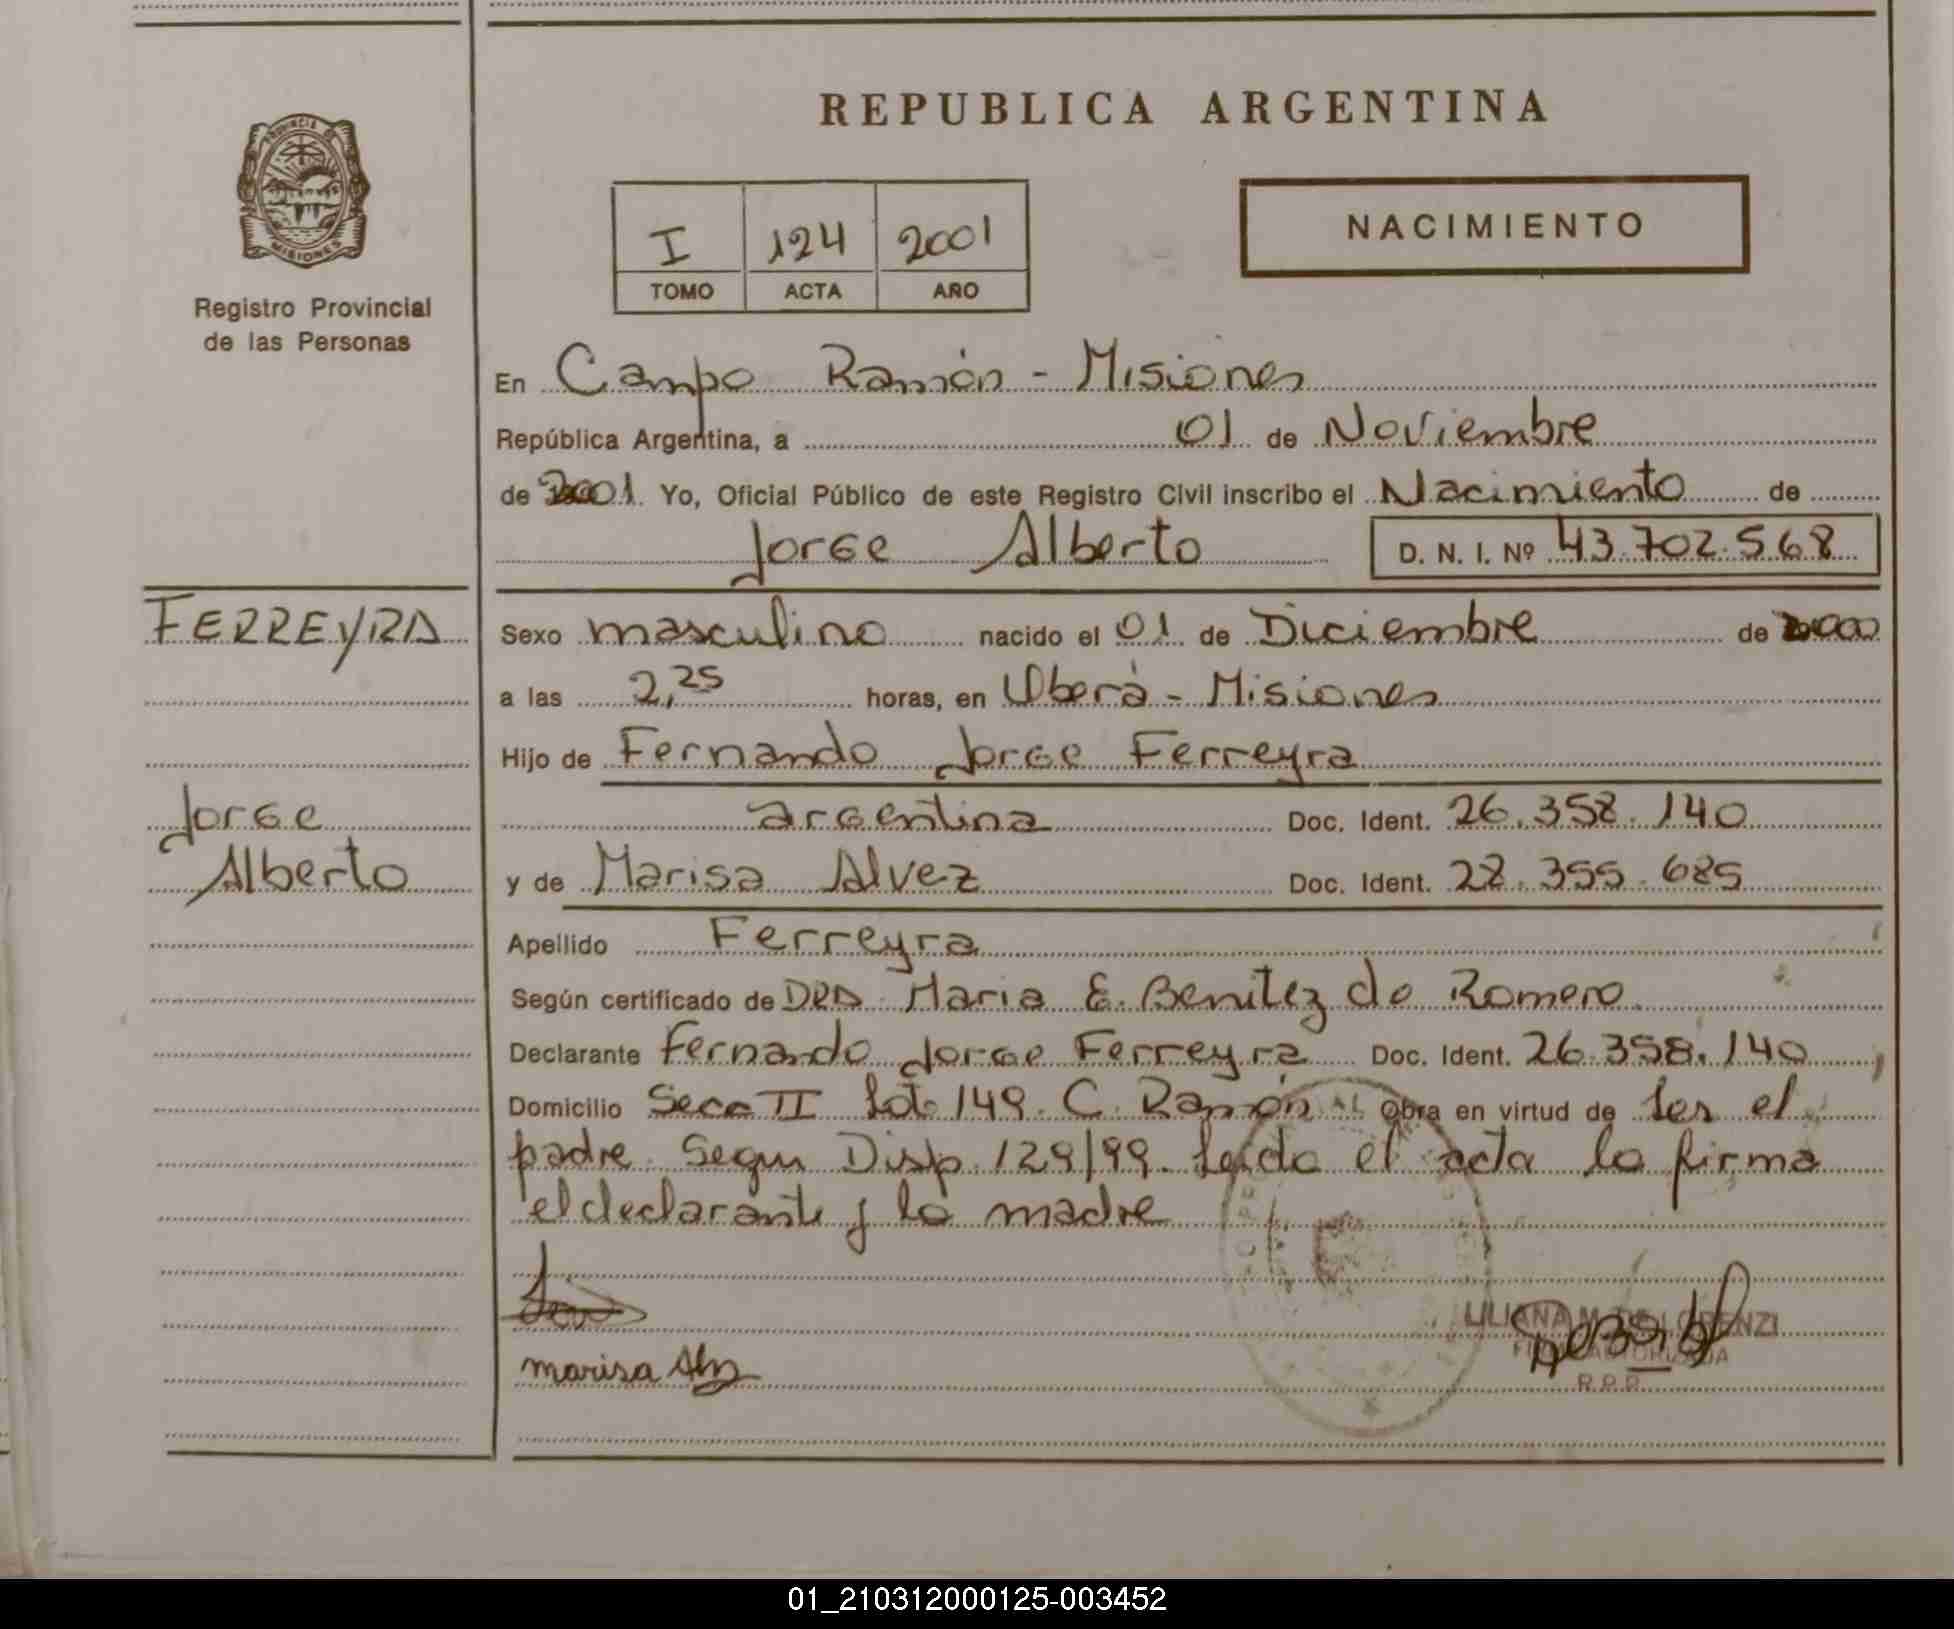 REPUBLICA ARGENTINA
PROVINCIA DE
MISIONES
Registro Provincial
de las Personas
I 124 2001
TOMO ACTA AÑO
NACIMIENTO
En Campo Ramón - Misiones
República Argentina, a 01 de Noviembre
de 2001. Yo, Oficial Público de este Registro Civil inscribo el Nacimiento de
Jorge Alberto D. N. I. Nº 43.702.568
FERREYRA
Sexo masculino nacido el 01 de Diciembre de 2000
a las 2,25 horas, en Oberá - Misiones
Hijo de Fernando Jorge Ferreyra
Jorge
Alberto
argentina Doc. Ident. 26.358.140
y de Marisa Alvez Doc. Ident. 28.355.685
Apellido Ferreyra
Según certificado de DRA Maria E. Benitez de Romero
Declarante Fernando Jorge Ferreyra Doc. Ident. 26.358.140
Domicilio Secc II Lote 149. C. Ramón Obra en virtud de ser el
padre. Segun Disp. 129/99. Leida el acta la firma
el declarante y la madre
marisa Alvz
LILIANA M. DE LORENZI
FIRMA AUTORIZADA
R.P.P.
01_210312000125-003452